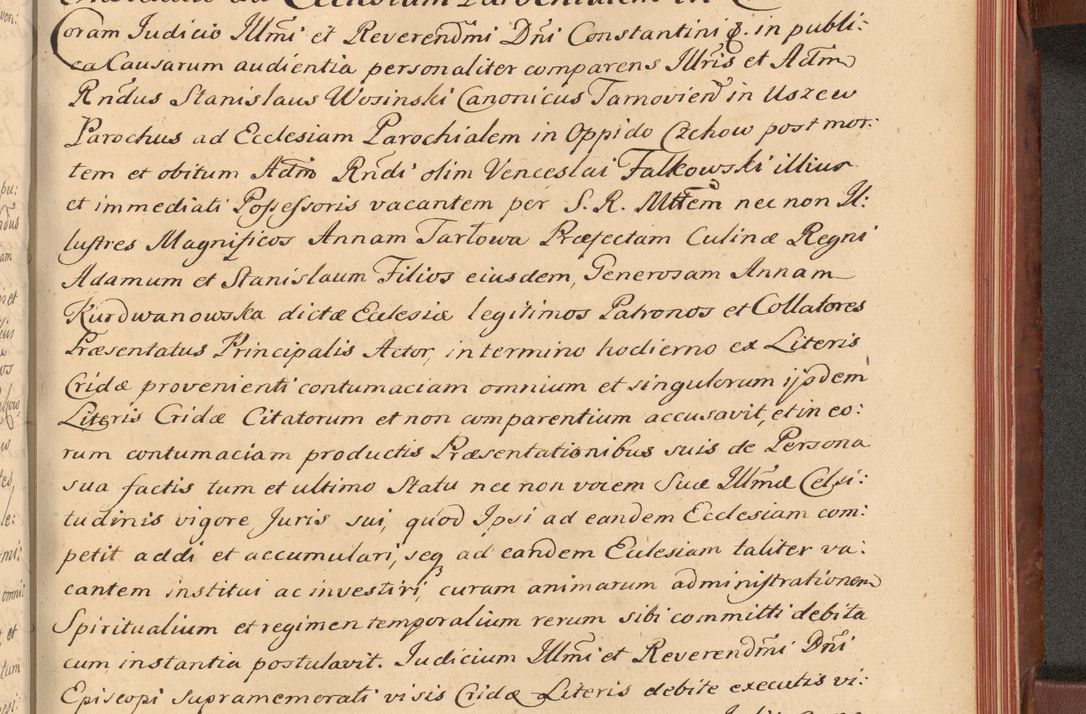 Coram Judicio Illmi et Reverendmi Dni Constantini &. in publi:
ca Causarum audientia personaliter comparens Illris et Adm
Rndus Stanislaus Wosinski Canonicus Tarnovien in Uszew
Parochus ad Ecclesiam Parochialem in Oppido Czchow post mor:
tem et obitum Adm Rndi olim Venceslai Falkowski illius
et immediati Possessoris vacantem per S. R. Mttem nec non Il:
lustres Magnificos Annam Tarłowa Præfectam Culinæ Regni
Adamum et Stanislaum Filios eiusdem, Generosam Annam
Kurdwanowska dictæ Ecclesiæ legitimos Patronos et Collatores
Præsentatus Principalis Actor, in termino hodierno ex Literis
Cridæ provenienti contumaciam omnium et singulorum ijsdem
Literis Cridæ Citatorum et non comparentium accusavit, et in eo:
rum contumaciam productis Præsentationibus suis de Persona
sua factis tum et ultimo Statu nec non vocem Suæ Illmæ Celsi:
tudinis vigore Juris sui, quod Ipsi ad eandem Ecclesiam com:
petit addi et accumulari, seq ad eandem Ecclesiam taliter va:
cantem institui ac investiri, curam animarum administrationem
Spiritualium et regimen temporalium rerum sibi committi debita
cum instantia postulavit. Judicium Illmi et Reverendmi Dni
Episcopi supramemorati visis Cridæ Literis debite executis vi: